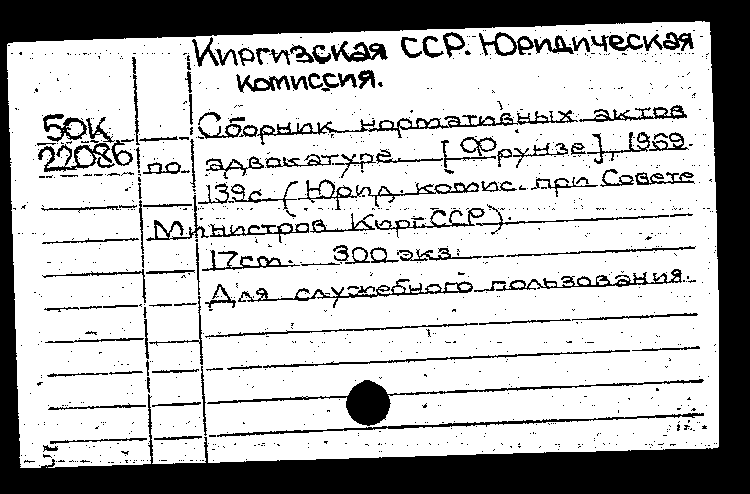 Киргизская ССР. Юридическая
комиссия.
50К
22086
Сборник нормативных актов
по адвокатуре. [Фрунзе], 1969.
139с. (Юрид. комис. при Совете
Министров Кирг.ССР).
17см. 300 экз.
Для служебного пользования.